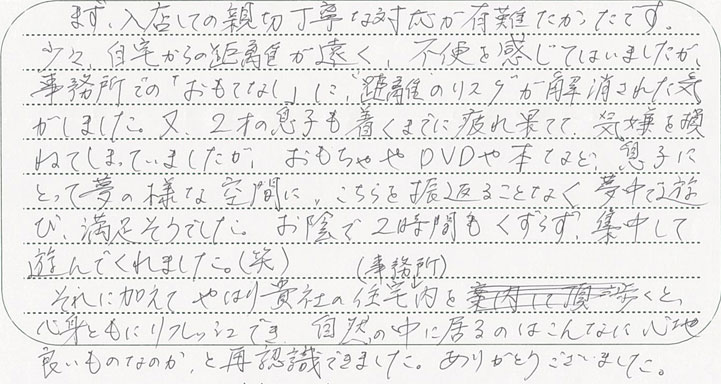 まず、入店しての親切丁寧な対応が有難たかったです。
少々、自宅からの距離が遠く、不便を感じてはいましたが、
事務所での「おもてなし」に、距離のリスクが解消された気
がしました。又、2才の息子も着くまでに疲れ果てて、気嫌を損
ねてしまっていましたが、おもちゃやDVDや本など、息子に
とって夢の様な空間に、ちらを振返ることなく、夢中で遊
び、満足そうでした。お陰で2時間もくずらず、集中して
遊んでくれました。(笑)
(事務所)
それに加えて やはり貴社の住宅内を歩くと、
心身ともにリフレッシュでき、自然の中に居るのはこんなに心地
良いものなのか、と再認識できました。ありがとうございました。